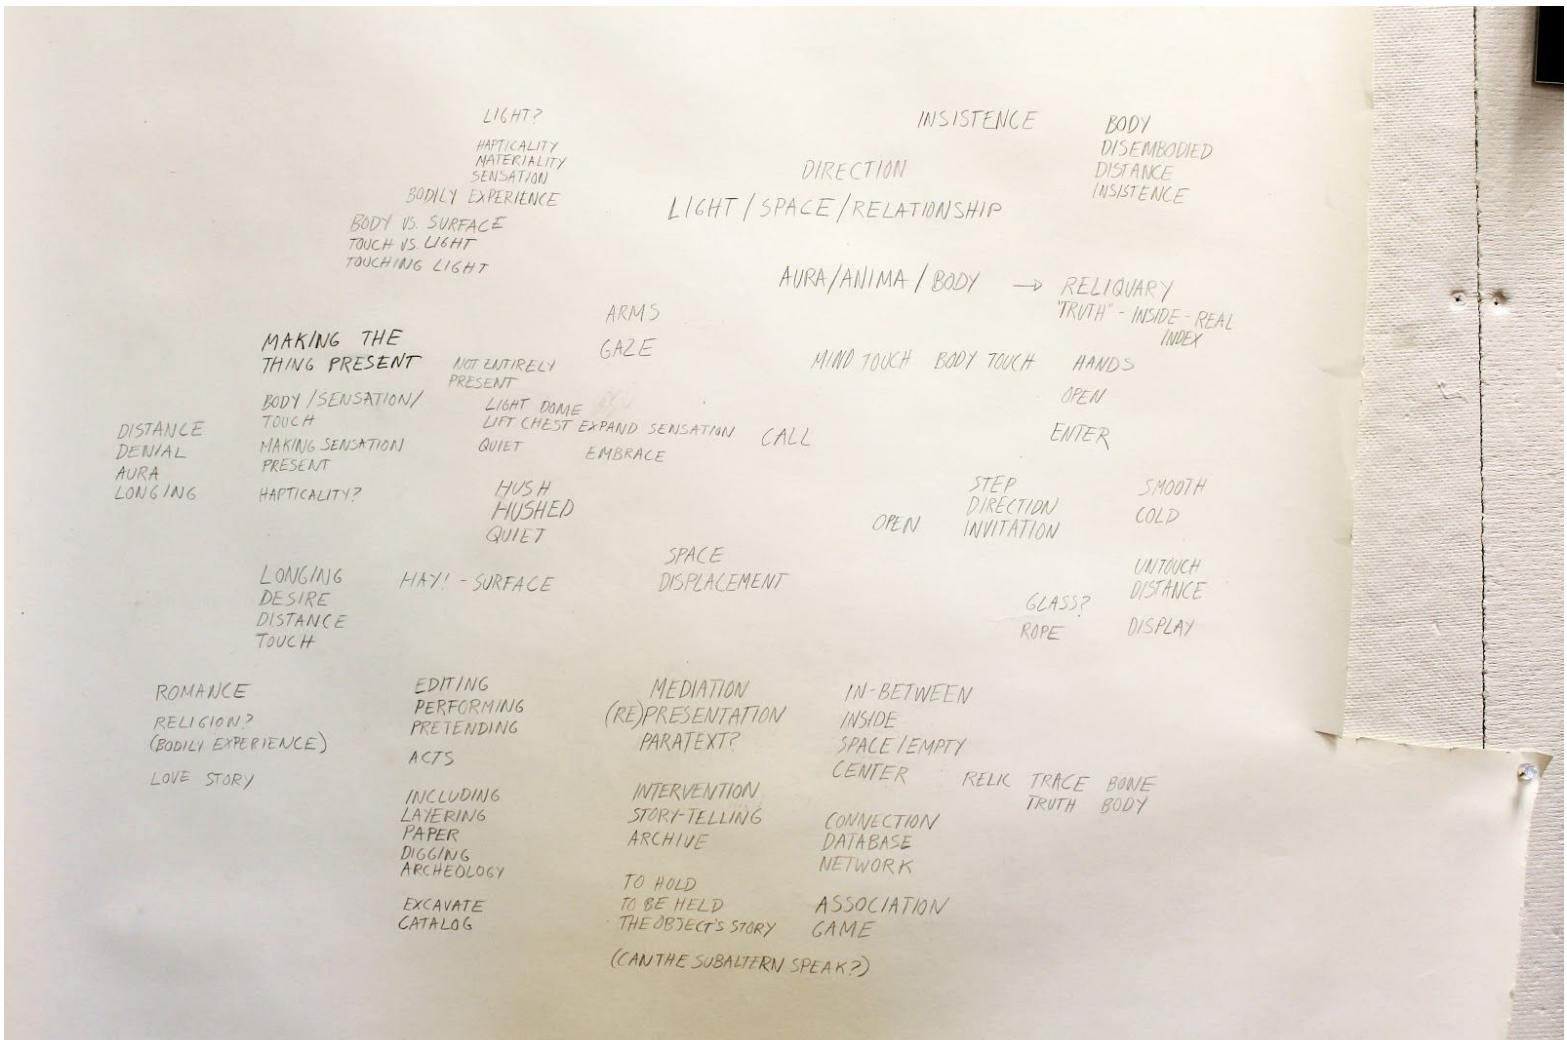 LIGHT?
HAPTICALITY
MATERIALITY
SENSATION
BODILY EXPERIENCE
BODY VS. SURFACE
TOUCH VS. LIGHT
TOUCHING LIGHT
INSISTENCE
DIRECTION
LIGHT / SPACE / RELATIONSHIP
BODY
DISEMBODIED
DISTANCE
INSISTENCE
AURA / ANIMA / BODY → RELIQUARY
"TRUTH" - INSIDE - REAL
INDEX
ARMS
GAZE
MAKING THE
THING PRESENT
NOT ENTIRELY
PRESENT
MIND TOUCH BODY TOUCH HANDS
OPEN
ENTER
BODY / SENSATION /
TOUCH
MAKING SENSATION
PRESENT
HAPTICALITY?
DISTANCE
DENIAL
AURA
LONGING
LIGHT DOME
LIFT CHEST EXPAND SENSATION
QUIET EMBRACE
CALL
HUSH
HUSHED
QUIET
OPEN
STEP
DIRECTION
INVITATION
SMOOTH
COLD
LONGING
DESIRE
DISTANCE
TOUCH
HAY! - SURFACE
SPACE
DISPLACEMENT
UNTOUCH
DISTANCE
GLASS?
ROPE
DISPLAY
ROMANCE
RELIGION?
(BODILY EXPERIENCE)
LOVE STORY
EDITING
PERFORMING
PRETENDING
ACTS
INCLUDING
LAYERING
PAPER
DIGGING
ARCHEOLOGY
EXCAVATE
CATALOG
MEDIATION
(RE)PRESENTATION
PARATEXT?
INTERVENTION
STORY-TELLING
ARCHIVE
TO HOLD
TO BE HELD
THE OBJECT'S STORY
(CAN THE SUBALTERN SPEAK?)
IN-BETWEEN
INSIDE
SPACE / EMPTY
CENTER
CONNECTION
DATABASE
NETWORK
ASSOCIATION
GAME
RELIC TRACE BONE
TRUTH BODY